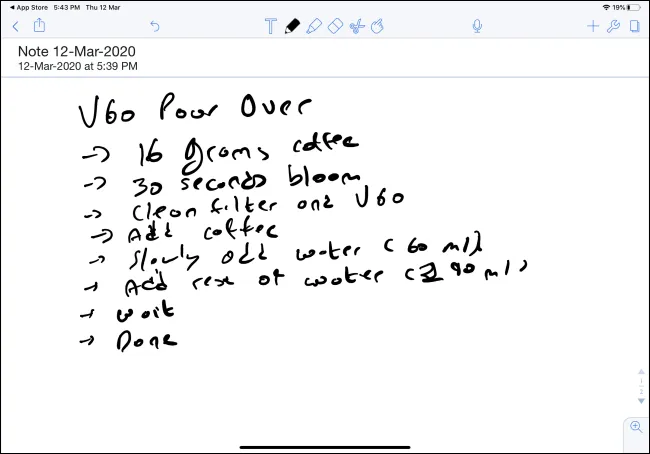 App Store 5:43 PM Thu 12 Mar 19%
T
Note 12-Mar-2020
12-Mar-2020 at 5:39 PM
V60 Pour Over
→ 16 grams coffee
→ 30 seconds bloom
→ Clean filter and V60
→ Add coffee
→ Slowly add water (60 ml)
→ Add rest of water (290 ml)
→ wait
→ Done
1
2